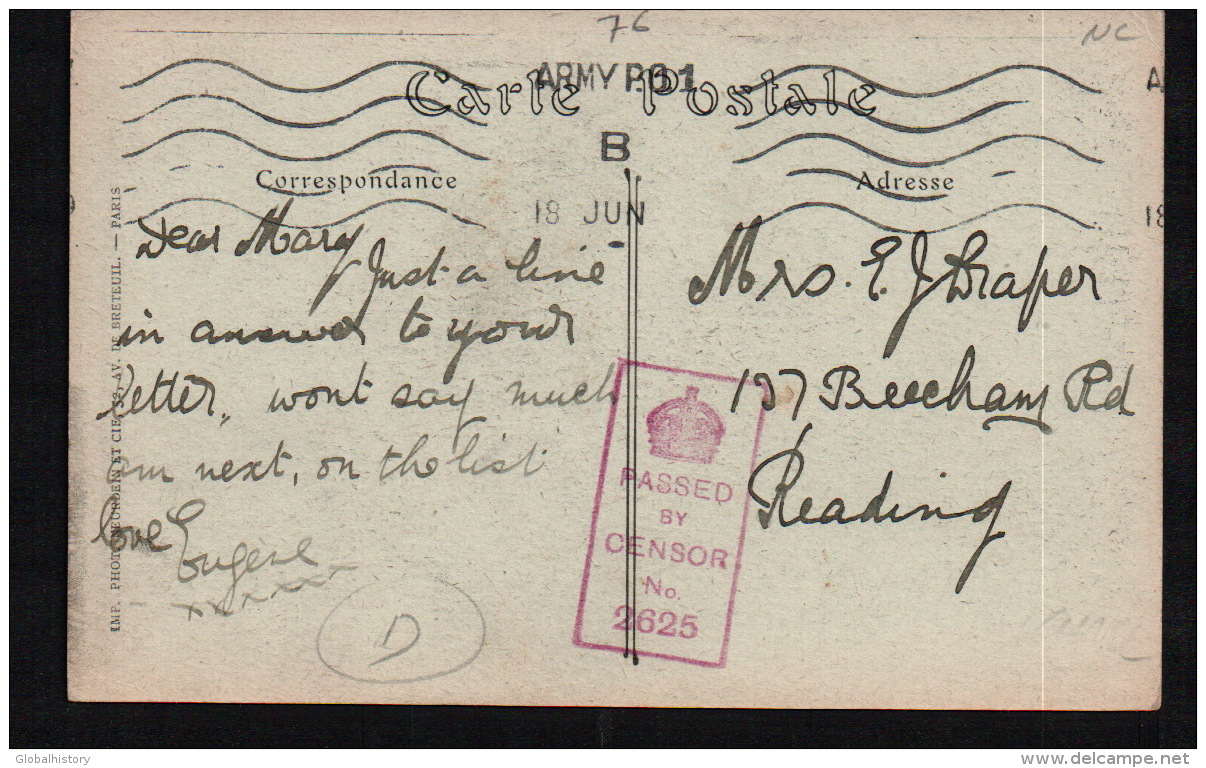 76
NC
ARMY P.B 1
Carte Postale
B
Correspondance
Adresse
18 JUN
18
Dear Mary
Just a line
in answer to your
letter, wont say much
am next, on the list
love Eugene
xxxxxxx
D
Mrs. E. J Draper
137 Beecham Rd
Reading
PASSED
BY
CENSOR
No.
2625
PARIS
Globalhistory
delcampe.net